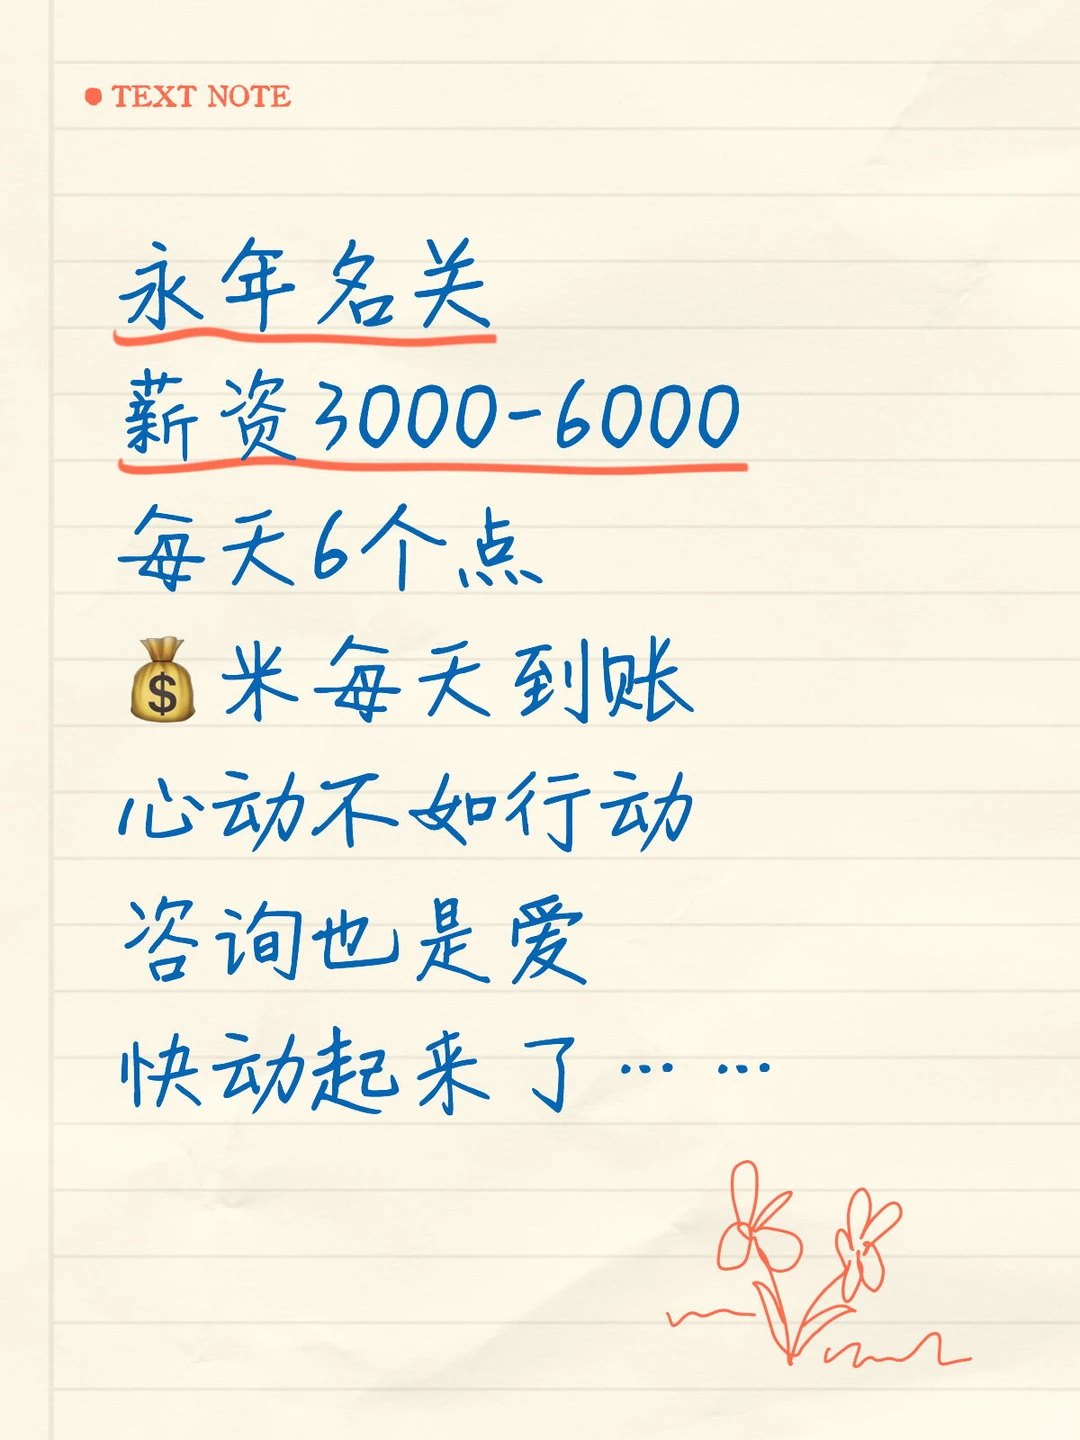 TEXT NOTE
永年名关
薪资3000-6000
每天6个点
💰米每天到账
心动不如行动
咨询也是爱
快动起来了……